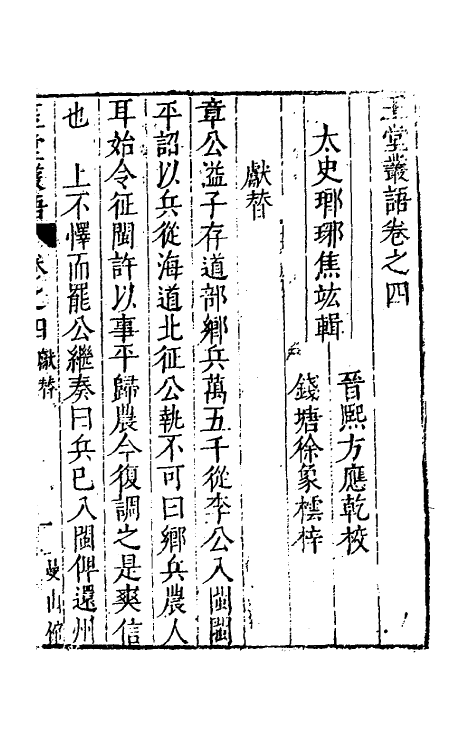 玉堂叢語卷之四
太史瑯琊焦竑輯
晉熙方應乾校
錢塘徐象橒梓
獻替
章公溢子存道部鄉兵萬五千從李公入閩閩
平詔以兵從海道北征公執不可曰鄉兵農人
耳始令征閩許以事平歸農今復調之是爽信
也　上不懌而罷公繼奏曰兵已入閩俾還州
玉堂叢語 卷之四 獻替 一 曼山館